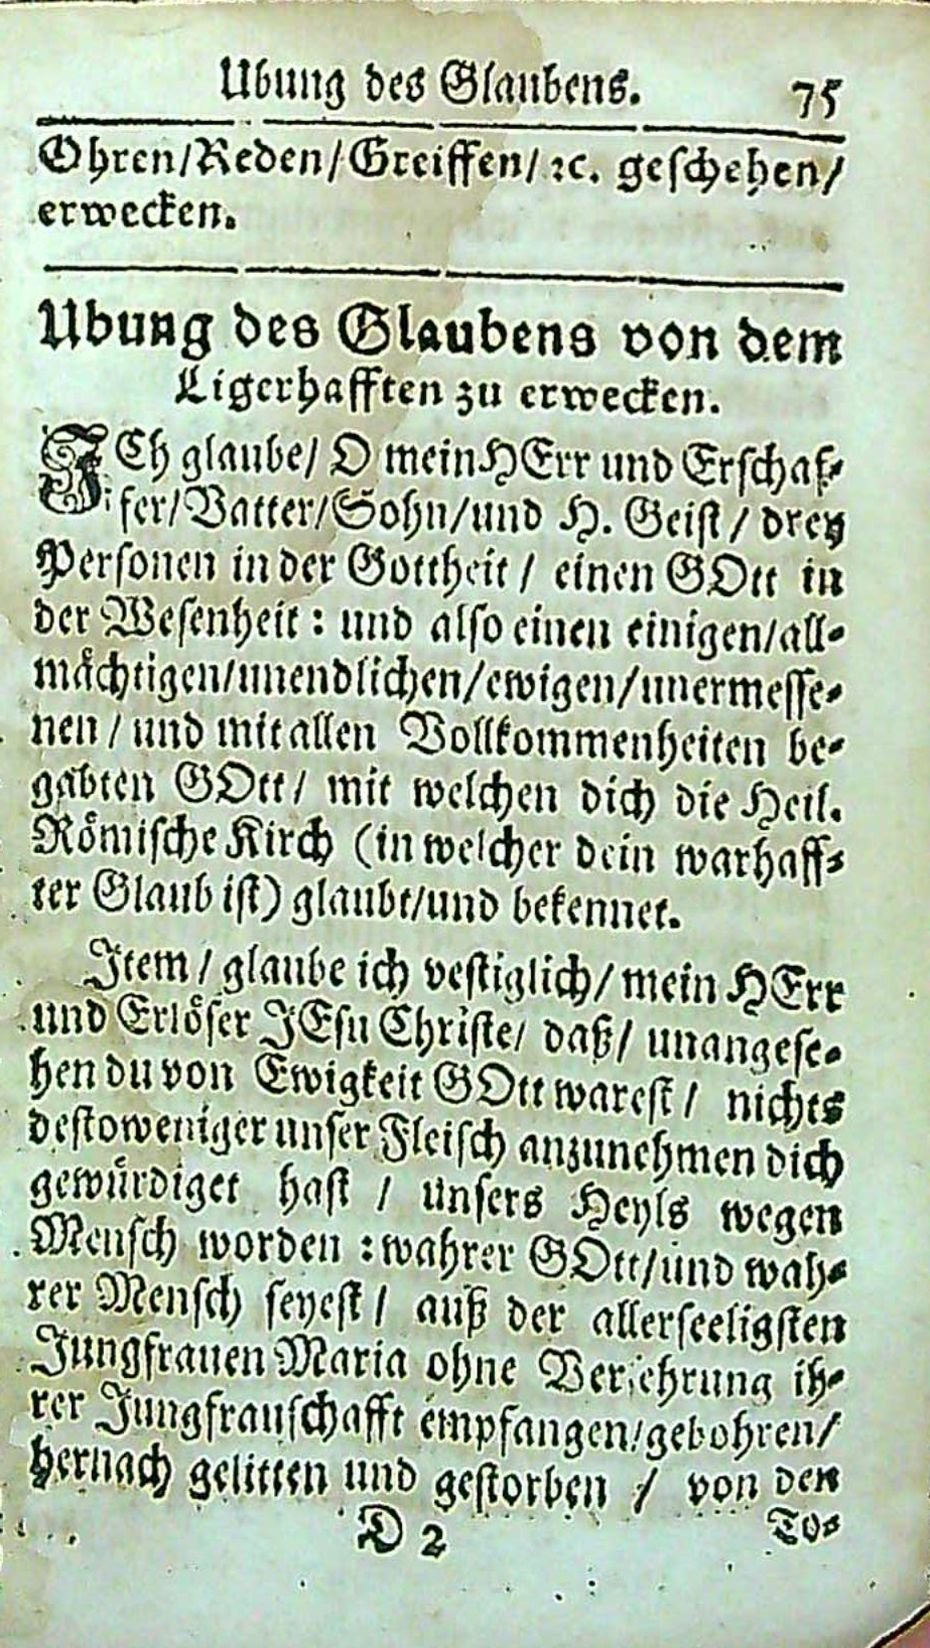 Ubung des Glaubens. 75
Ohren/Reden/Greiffen/ ꝛc. geschehen/
erwecken.
Ubung des Glaubens von dem
Ligerhafften zu erwecken.
ICh glaube/ O mein HErr und Erschaf-
fer/Vatter/Sohn/und H. Geist / drey
Personen in der Gottheit / einen GOtt in
der Wesenheit : und also einen einigen/all-
mächtigen/unendlichen/ewigen/unermesse-
nen / und mit allen Vollkommenheiten be-
gabten GOtt/ mit welchen dich die Heil.
Römische Kirch (in welcher dein warhaff-
ter Glaub ist) glaubt/und bekennet.
Item / glaube ich vestiglich/ mein HErr
und Erlöser JEsu Christe/ daß/ unangese-
hen du von Ewigkeit GOtt warest / nichts
destoweniger unser Fleisch anzunehmen dich
gewürdiget hast / unsers Heyls wegen
Mensch worden : wahrer GOtt/und wah-
rer Mensch seyest / auß der allerseeligsten
Jungfrauen Maria ohne Verzehrung ih-
rer Jungfrauschafft empfangen/gebohren/
hernach gelitten und gestorben / von den
D 2 To-